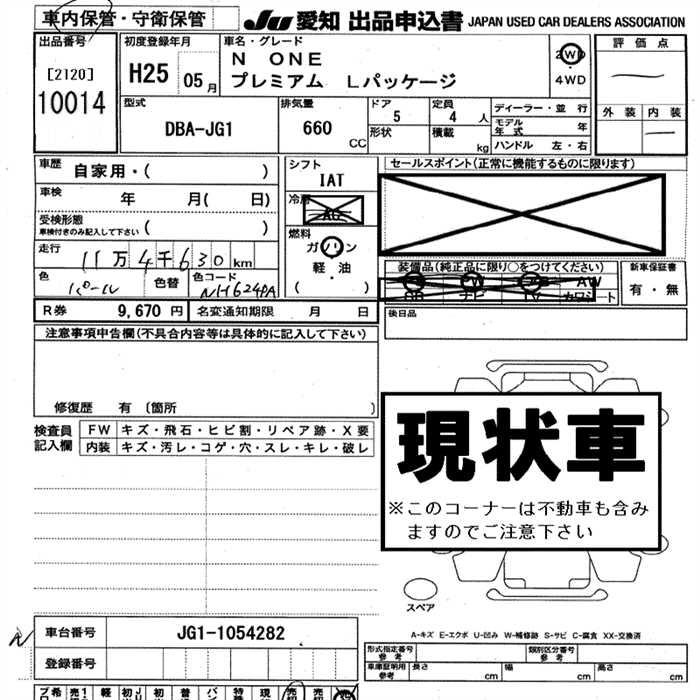 車内保管・守衛保管
JU 愛知 出品申込書 JAPAN USED CAR DEALERS ASSOCIATION
出品番号
[2120]
10014
初度登録年月
H25 05月
車名・グレード
N ONE
プレミアム Lパッケージ
2WD
4WD
評価点
外装 内装
型式
DBA-JG1
排気量
660 CC
ドア
5
形状
定員
4 人
積載 kg
ディーラー・並行
モデル年式 年
ハンドル 左・右
車歴 自家用・( )
車検 年 月( 日)
受検形態
車検付きのみ記入して下さい ( )
走行 11万4千630km
色 パール 色替 色コード NH624PA
シフト
IAT
冷房
AC
燃料
ガソリン
軽・油
( )
セールスポイント(正常に機能するものに限ります)
装備品(純正品に限り○をつけてください)
SR ナビ TV カワシート
AW
新車保証書
有・無
R券 9,670円 名変通知期限 月 日
後日品
注意事項申告欄(不具合内容等は具体的に記入して下さい)
修復歴 有〔箇所 〕
検査員記入欄
FW キズ・飛石・ヒビ割・リペア跡・X要
内装 キズ・汚レ・コゲ・穴・スレ・キレ・破レ
現状車
※このコーナーは不動車も含み
ますのでご注意下さい
スペア
A-キズ E-エクボ U-凹み W-補修跡 S-サビ C-腐食 XX-交換済
N 車台番号 JG1-1054282
登録番号
形式指定番号
参考
類別区分番号
参考
車庫証明用
参考
長さ cm 幅 cm 高さ cm